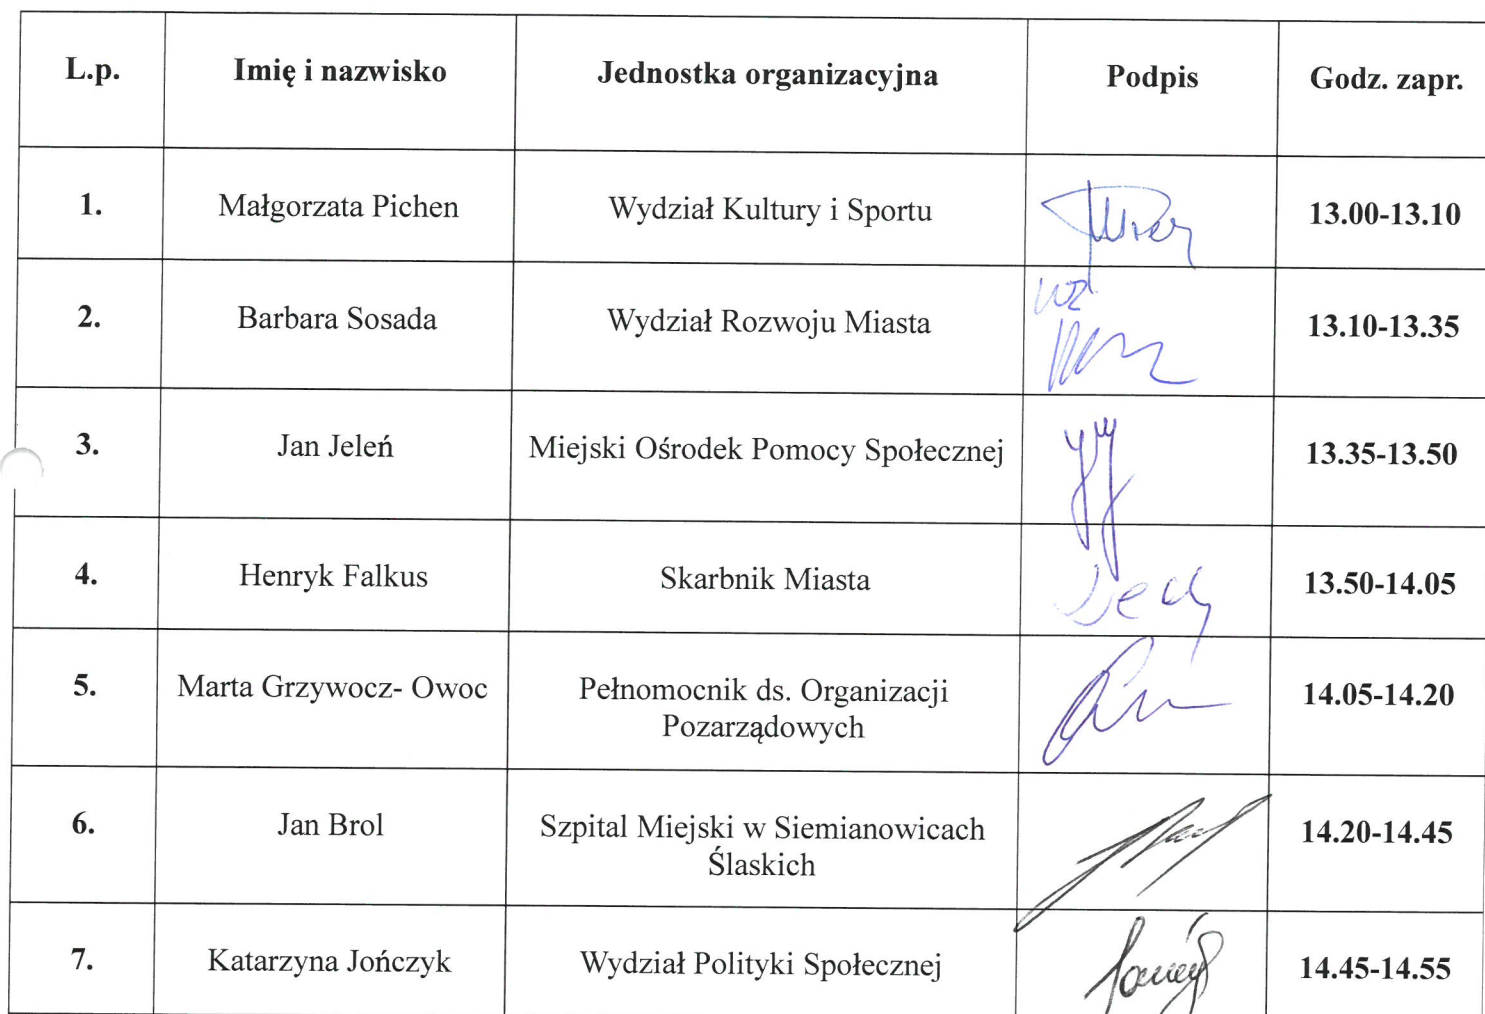 L.p. Imię i nazwisko Jednostka organizacyjna Podpis Godz. zapr.
1. Małgorzata Pichen Wydział Kultury i Sportu 13.00-13.10
2. Barbara Sosada Wydział Rozwoju Miasta wz 13.10-13.35
3. Jan Jeleń Miejski Ośrodek Pomocy Społecznej 13.35-13.50
4. Henryk Falkus Skarbnik Miasta 13.50-14.05
5. Marta Grzywocz- Owoc Pełnomocnik ds. Organizacji
Pozarządowych 14.05-14.20
6. Jan Brol Szpital Miejski w Siemianowicach
Ślaskich 14.20-14.45
7. Katarzyna Jończyk Wydział Polityki Społecznej 14.45-14.55